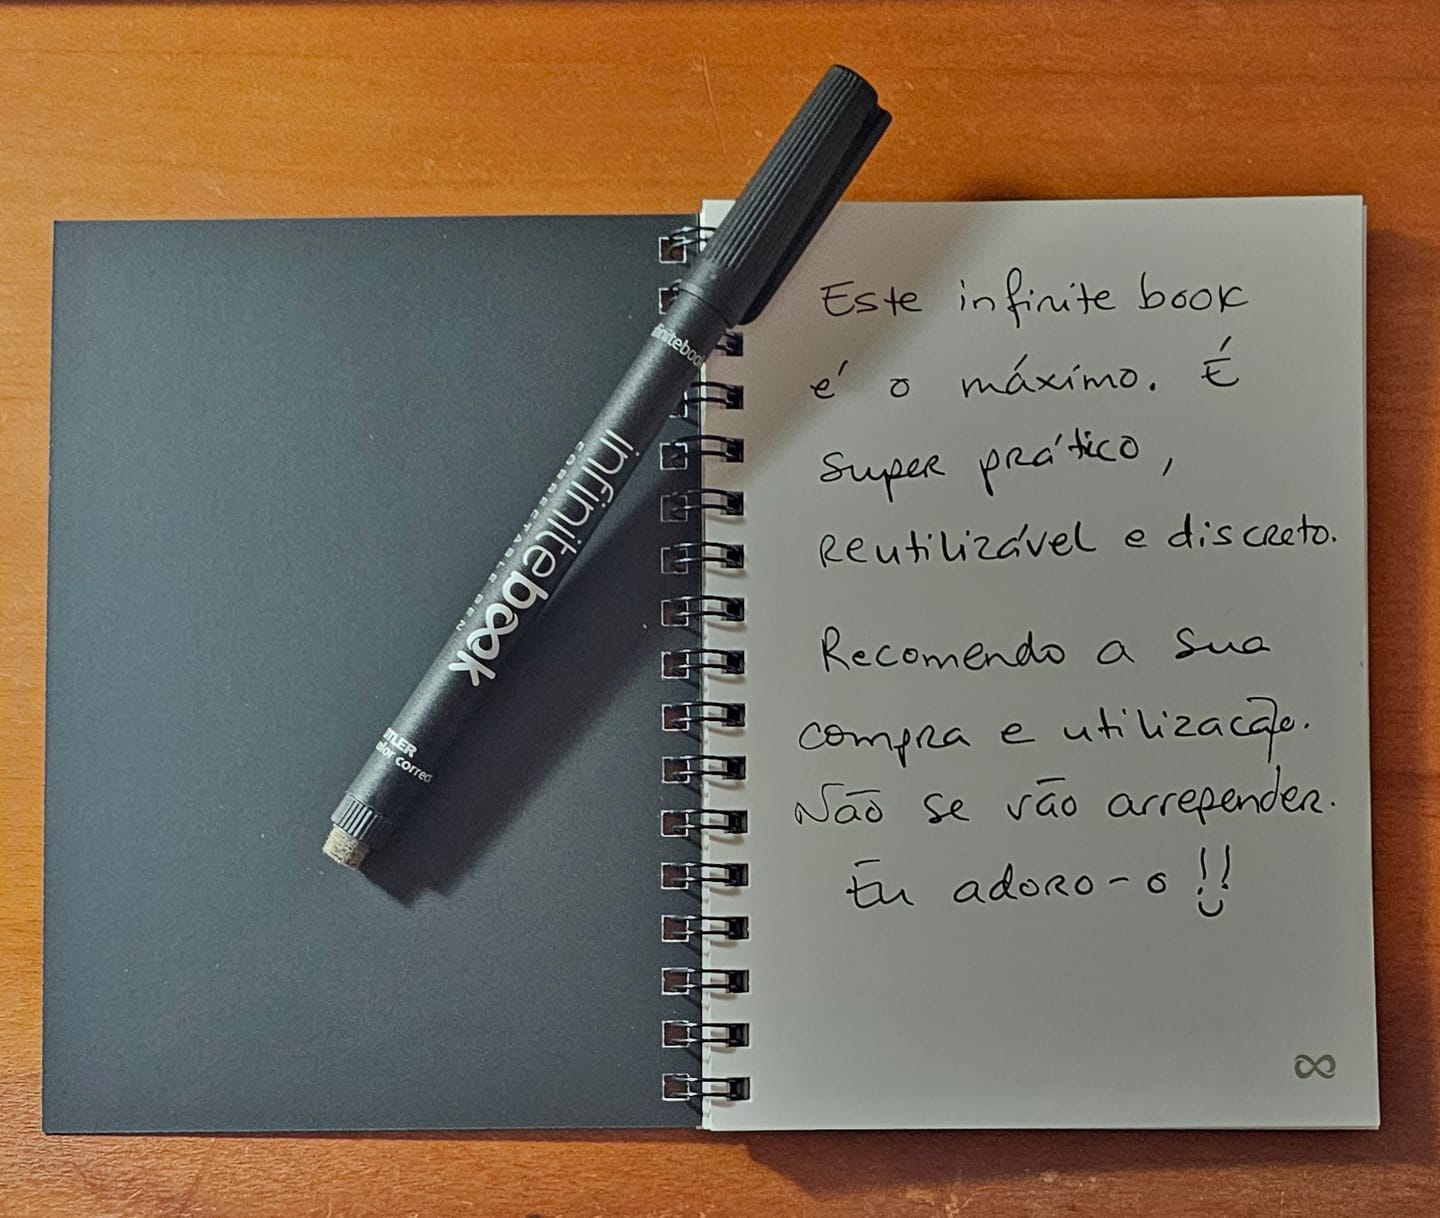 finitebook
infinitebook
CORRECTABLE PEN
TLER
olor correc
Este infinite book
é o máximo. É
super prático,
reutilizável e discreto.
Recomendo a sua
compra e utilização.
Não se vão arrepender.
Eu adoro-o !!